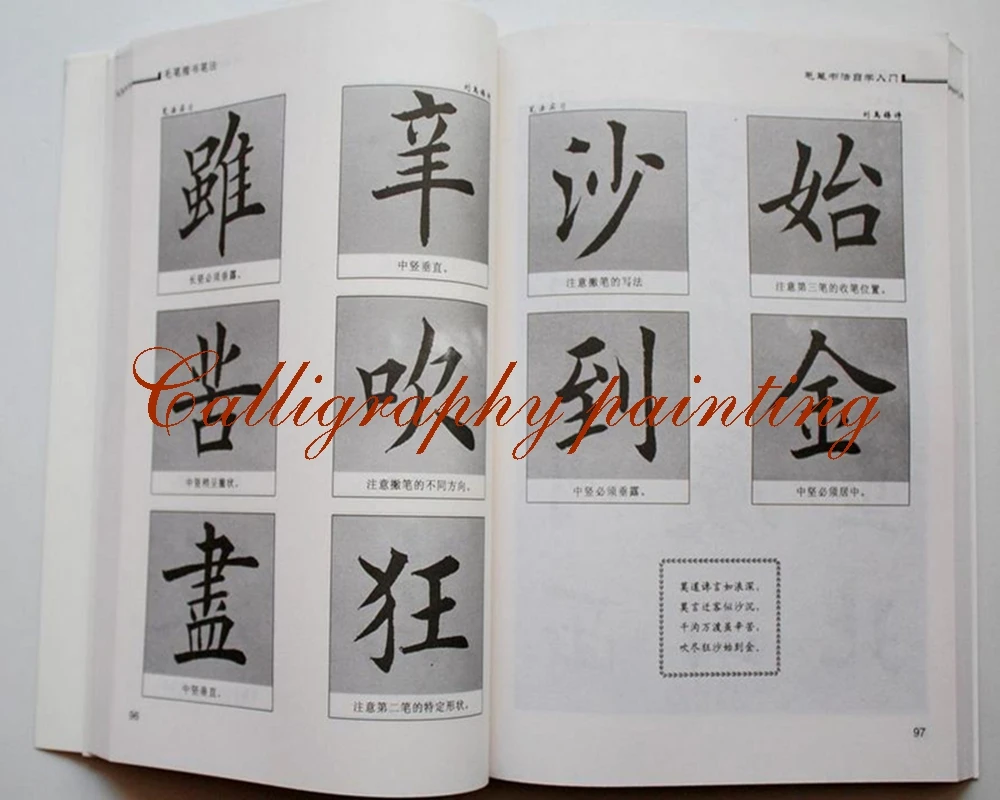 毛笔楷书笔法
刘禹锡诗
雖 辛
长竖必须垂露。
中竖垂直。
苦 吹
中竖稍呈撇状。
注意撇笔的不同方向。
盡 狂
中竖垂直。
注意第二笔的特定形状。
96
毛笔书法自学入门
刘禹锡诗
沙 始
注意撇笔的写法
注意第三笔的收笔位置。
到 金
中竖必须垂露。
中竖必须居中。
莫道谗言如浪深,
莫言迁客似沙沉。
千淘万漉虽辛苦,
吹尽狂沙始到金。
97
Calligraphy painting